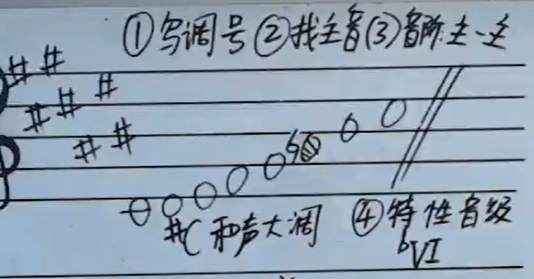 ①写调号②找主音(3)音阶主-主
#C 和声大调 ④特性音级
bVI